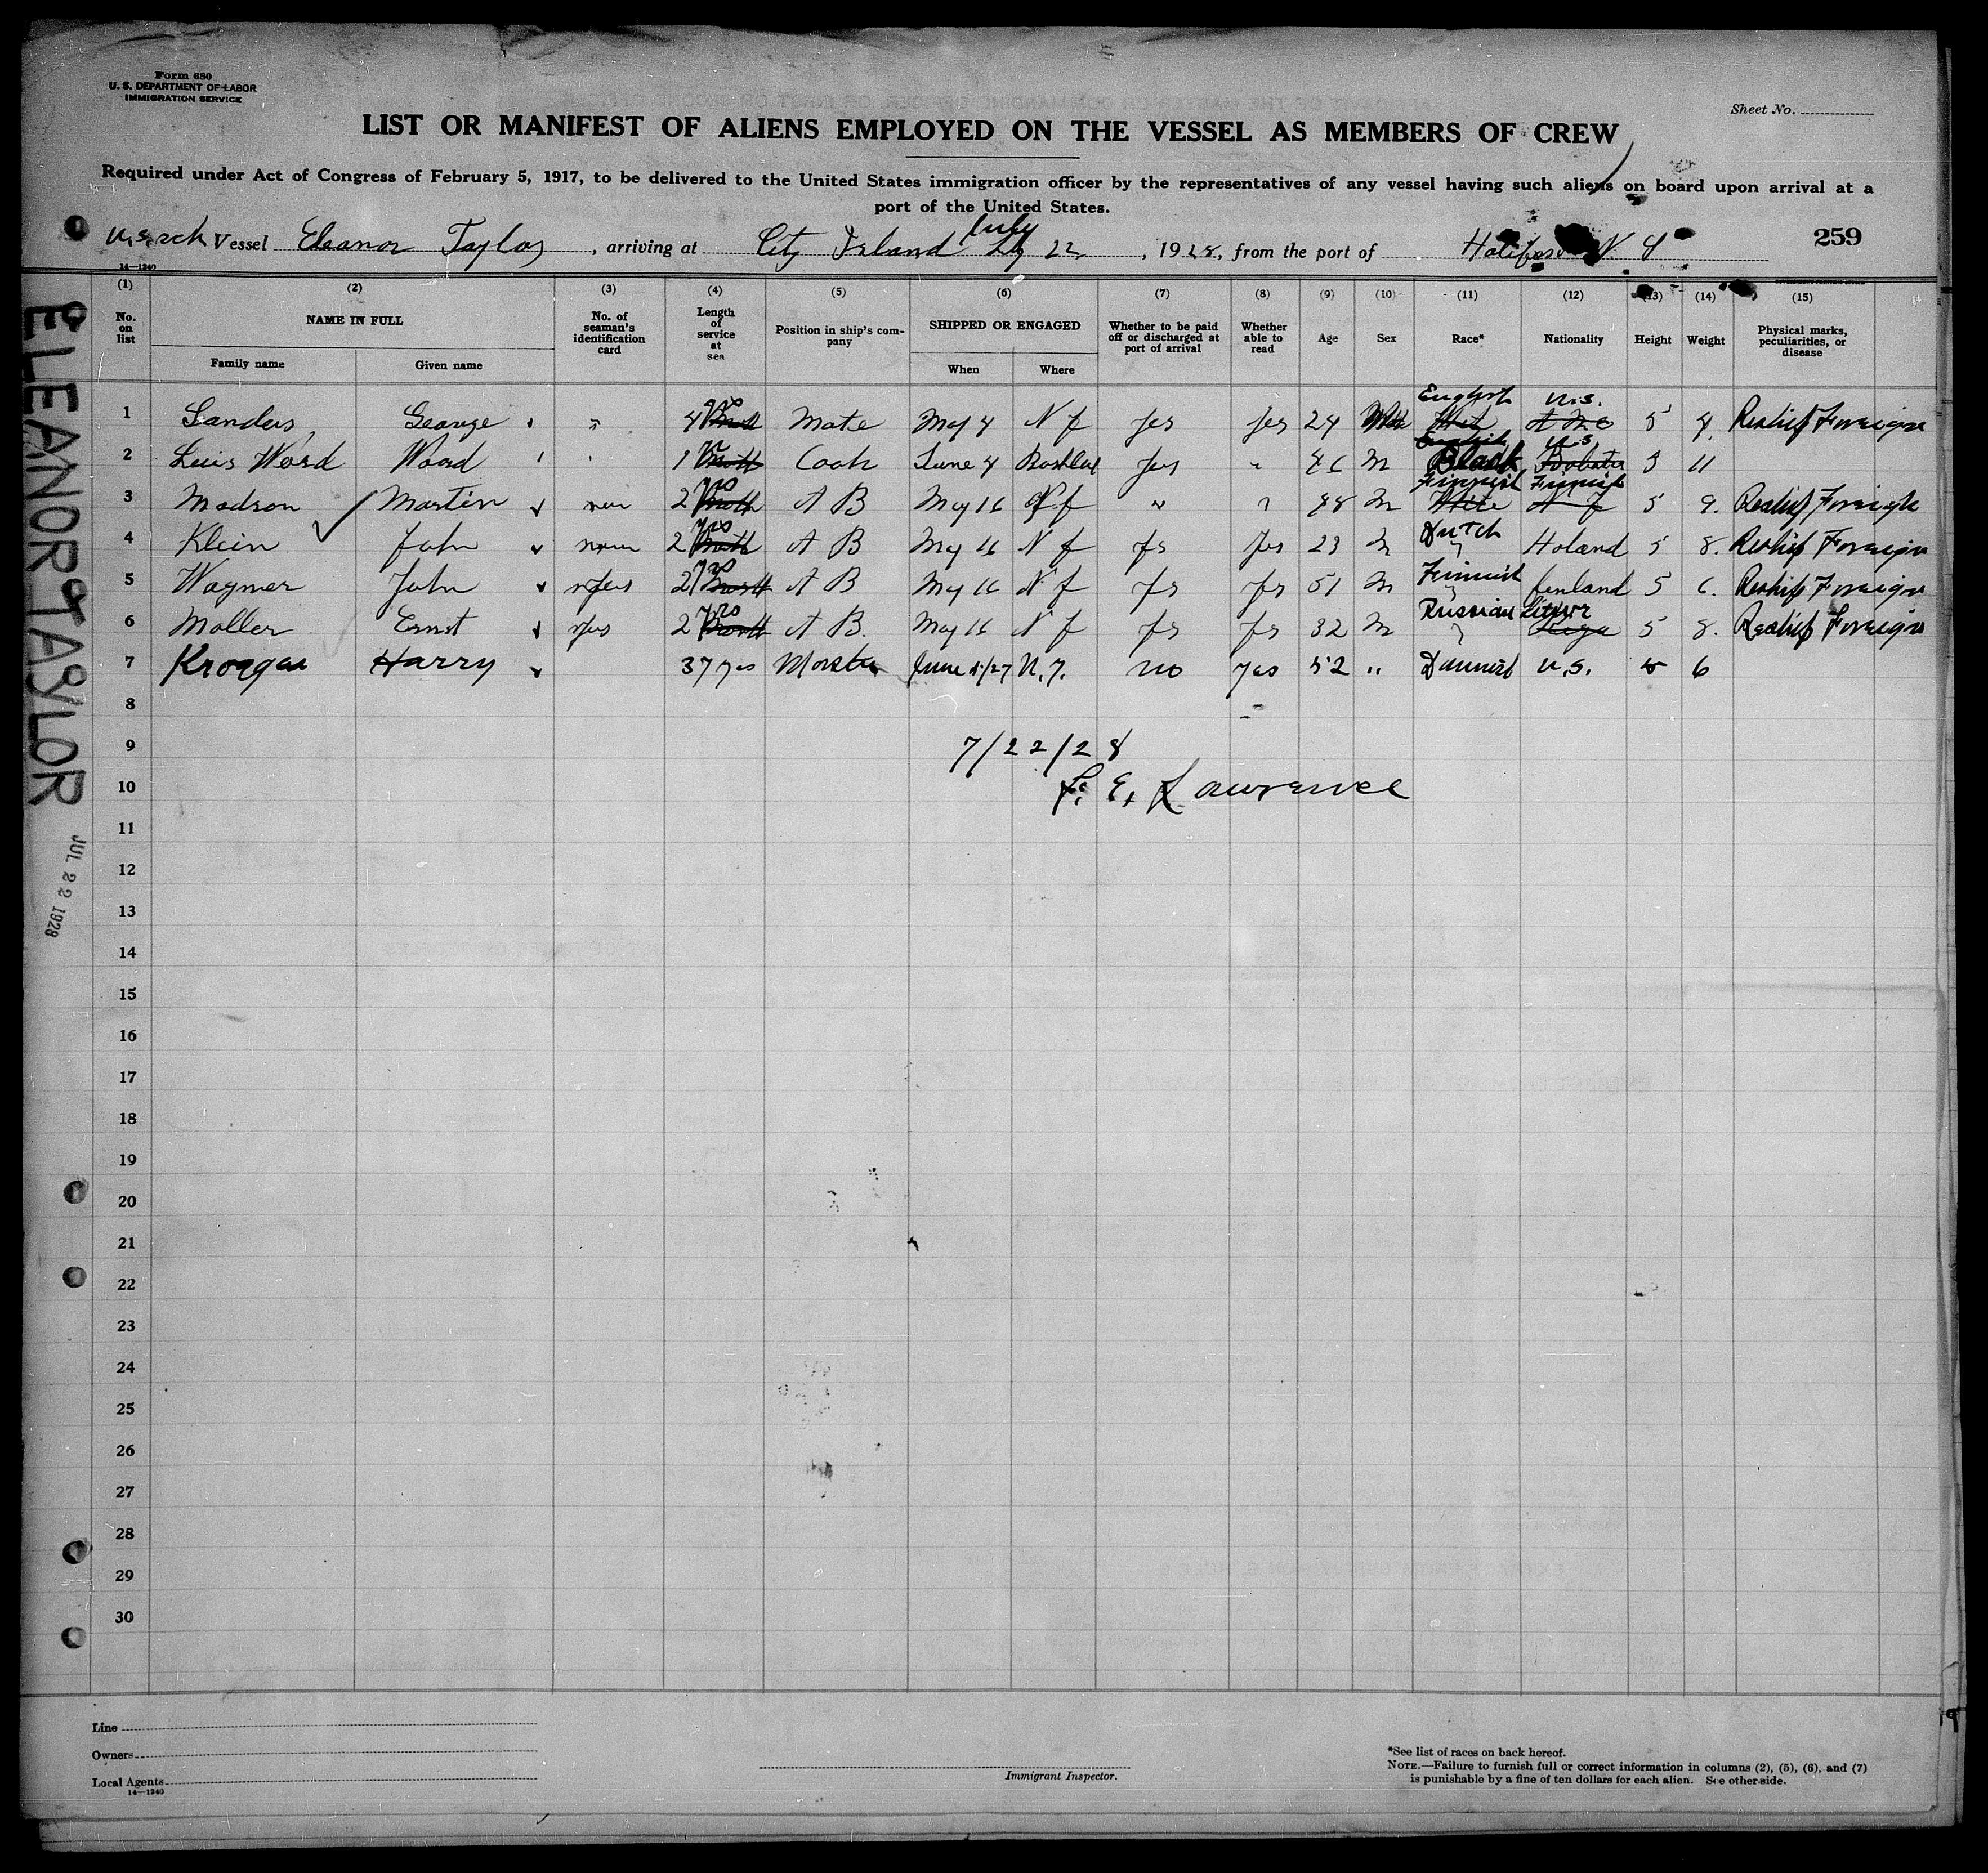 Form 680
U. S. DEPARTMENT OF LABOR
IMMIGRATION SERVICE
Sheet No.
LIST OR MANIFEST OF ALIENS EMPLOYED ON THE VESSEL AS MEMBERS OF CREW
Required under Act of Congress of February 5, 1917, to be delivered to the United States immigration officer by the representatives of any vessel having such aliens on board upon arrival at a
port of the United States.
Vessel Eleanor Taylor, arriving at City Island July 22, 1928, from the port of Halifax N. S 259
14—1240
(1) (2) (3) (4) (5) (6) (7) (8) (9) (10) (11) (12) (13) (14) (15)
No. on list NAME IN FULL No. of seaman's identification card Length of service at sea Position in ship's company SHIPPED OR ENGAGED Whether to be paid off or discharged at port of arrival Whether able to read Age Sex Race* Nationality Height Weight Physical marks, peculiarities, or disease
Family name Given name When Where
1 Sanders, George " 4 yrs Mate May 4 N Y Yes Yes 24 English U.S. 5 Reship Foreign
2 Luis Word Wood 1 Cook June 4 Yes " 46 M English Black U.S. 5 11
3 Madson Martin 2 yrs A B May 16 N Y " " 48 M Finnish White Finnish N Y 5 9. Reship Foreign
4 Klein John 2 yrs A B May 16 N Y Yes Yes 23 M Dutch " Holand 5 8. Reship Foreign
5 Waymer John 2 yrs A B May 16 N Y Yes Yes 51 M Finnish " finland 5 6. Reship Foreign
6 Moller Ernst 2 yrs A B. May 16 N Y Yes Yes 32 M Russian " Riga 5 8. Reship Foreign
7 Kroager Harry 37 yrs Master June N.Y. no yes 52 " Danish U.S. 5 6
8
9
7/22/28
10
F. E. Lawrence
11
12
13
14
15
16
17
18
19
20
21
22
23
24
25
26
27
28
29
30
ELEANOR TAYLOR
JUL 22 1928
Line
Owners
Local Agents
14—1240
Immigrant Inspector.
*See list of races on back hereof.
NOTE.—Failure to furnish full or correct information in columns (2), (5), (6), and (7)
is punishable by a fine of ten dollars for each alien. See other side.